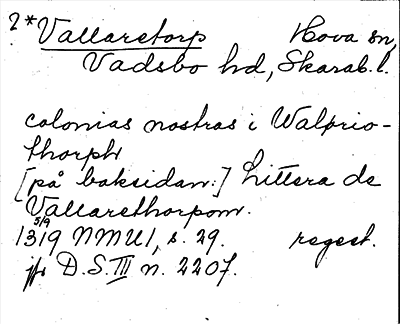 2*Vallaretorp Hova sn,
Vadsbo hd, Skarab.l.
colonias nostras i Walprio-
thorph
[på baksidan:] Littera de
Vallarethorpom.
5/9
1319 NMU1, s. 29. regest.
jfr D.S. III n. 2207.